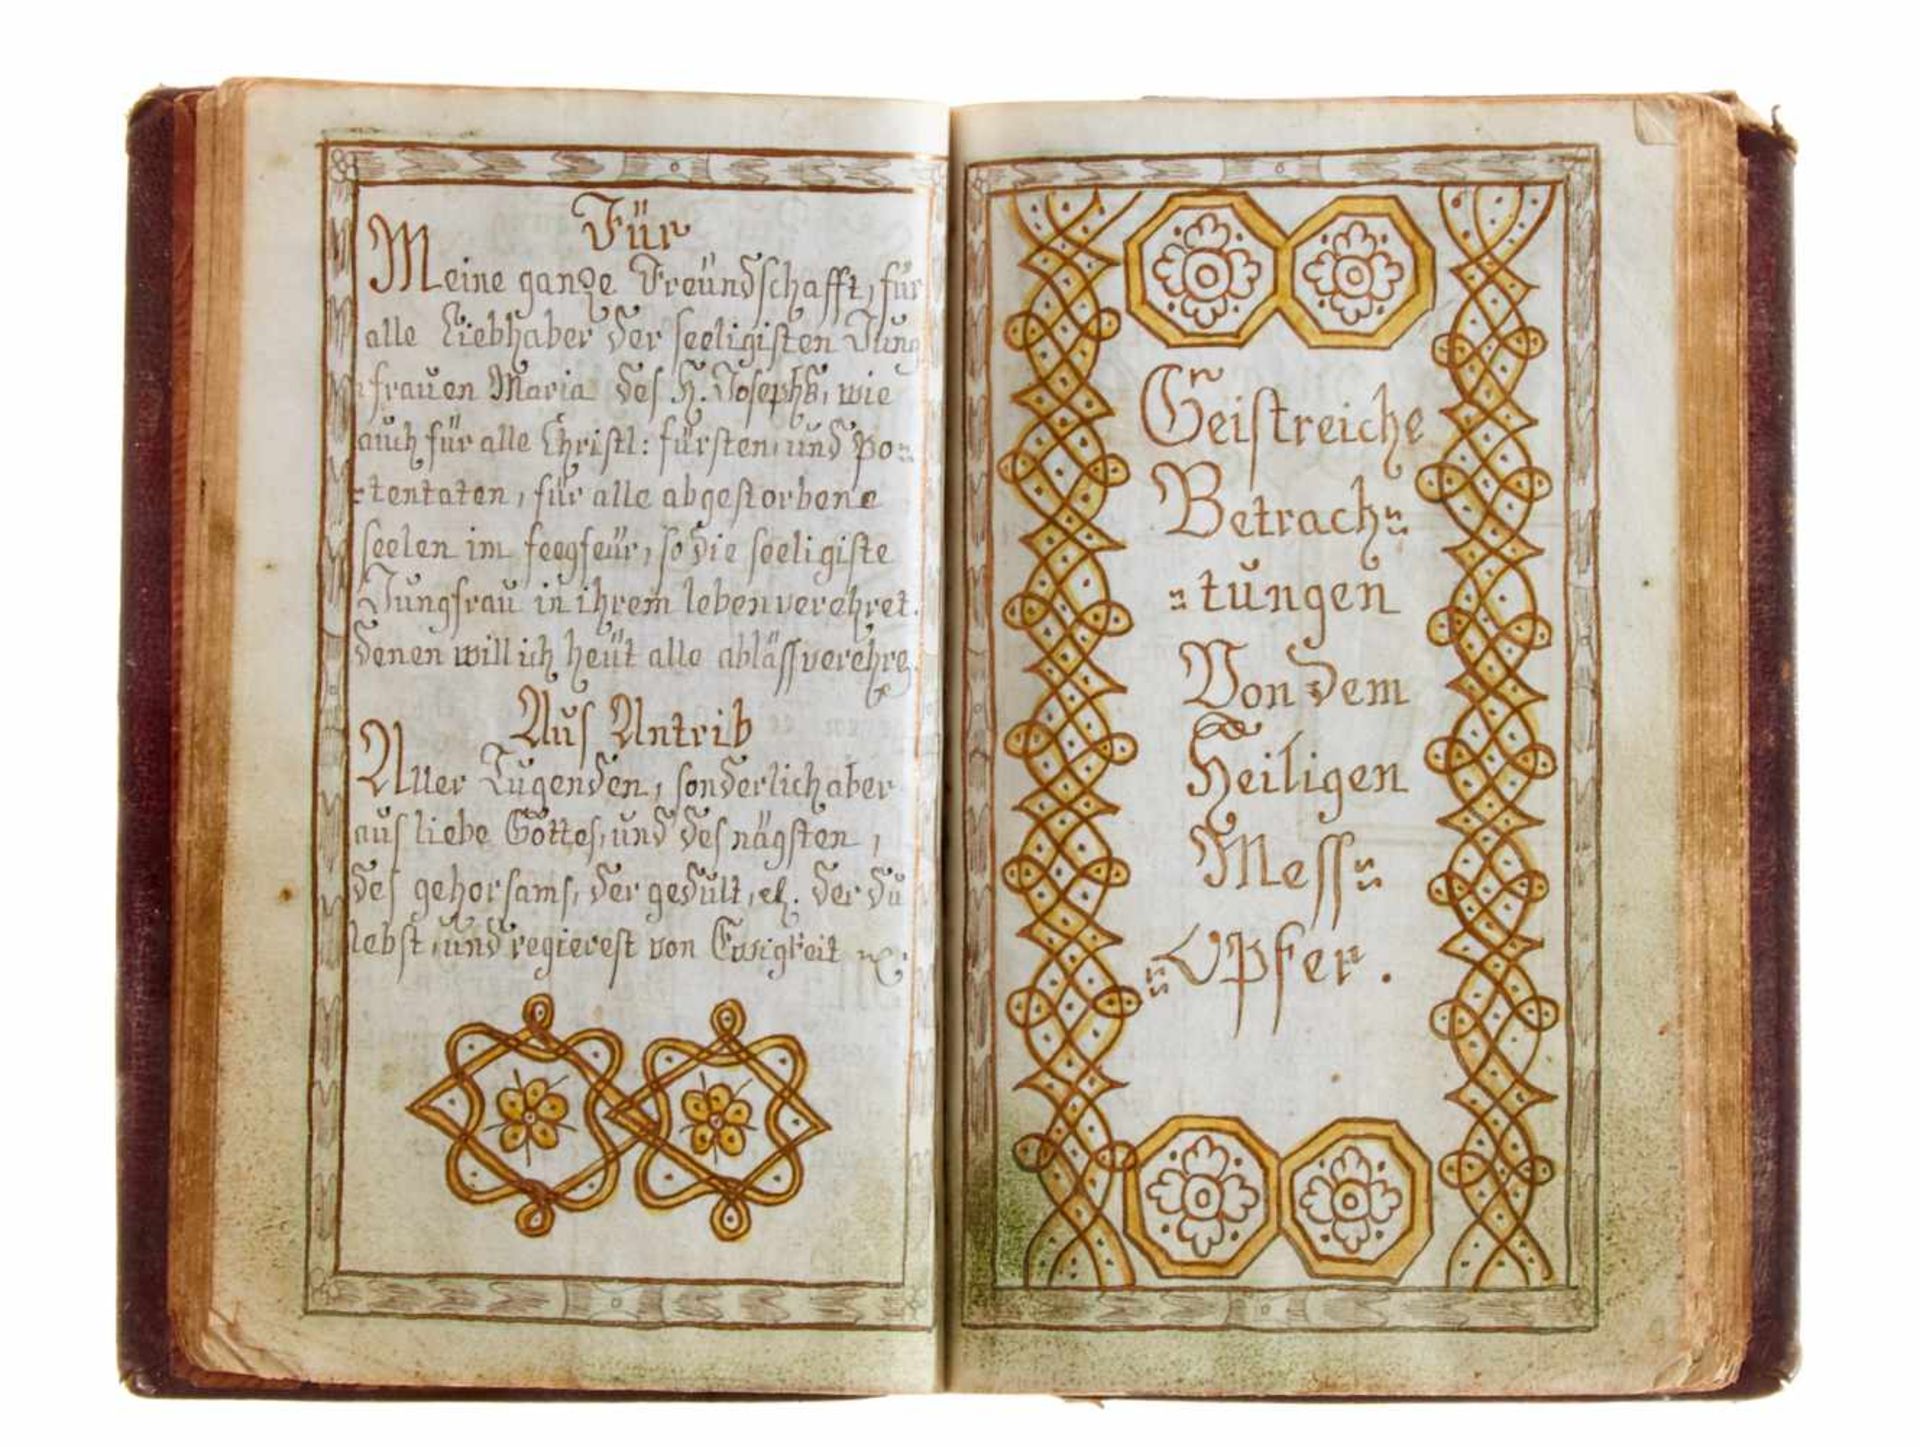 Für
Meine ganze Freündschafft, für
alle Liebhaber der seeligisten Jung
frauen Maria des H. Josephs, wie
auch für alle Christl: fürsten, und Po=
=tentaten, für alle abgestorbene
seelen im feegfeür, so die seeligiste
Jungfrau in ihrem leben verehret.
denen will ich heüt alle abläss verehre
Aus Antrib
Aller Tugenden, sonderlich aber
aus liebe Gottes, und des nägsten,
des gehorsams, der gedult, etc. der du
lebst, und regierest von Ewigkeit etc:
Geistreiche
Betrach=
=tungen
Von dem
Heiligen
Mess=
=Opfer.